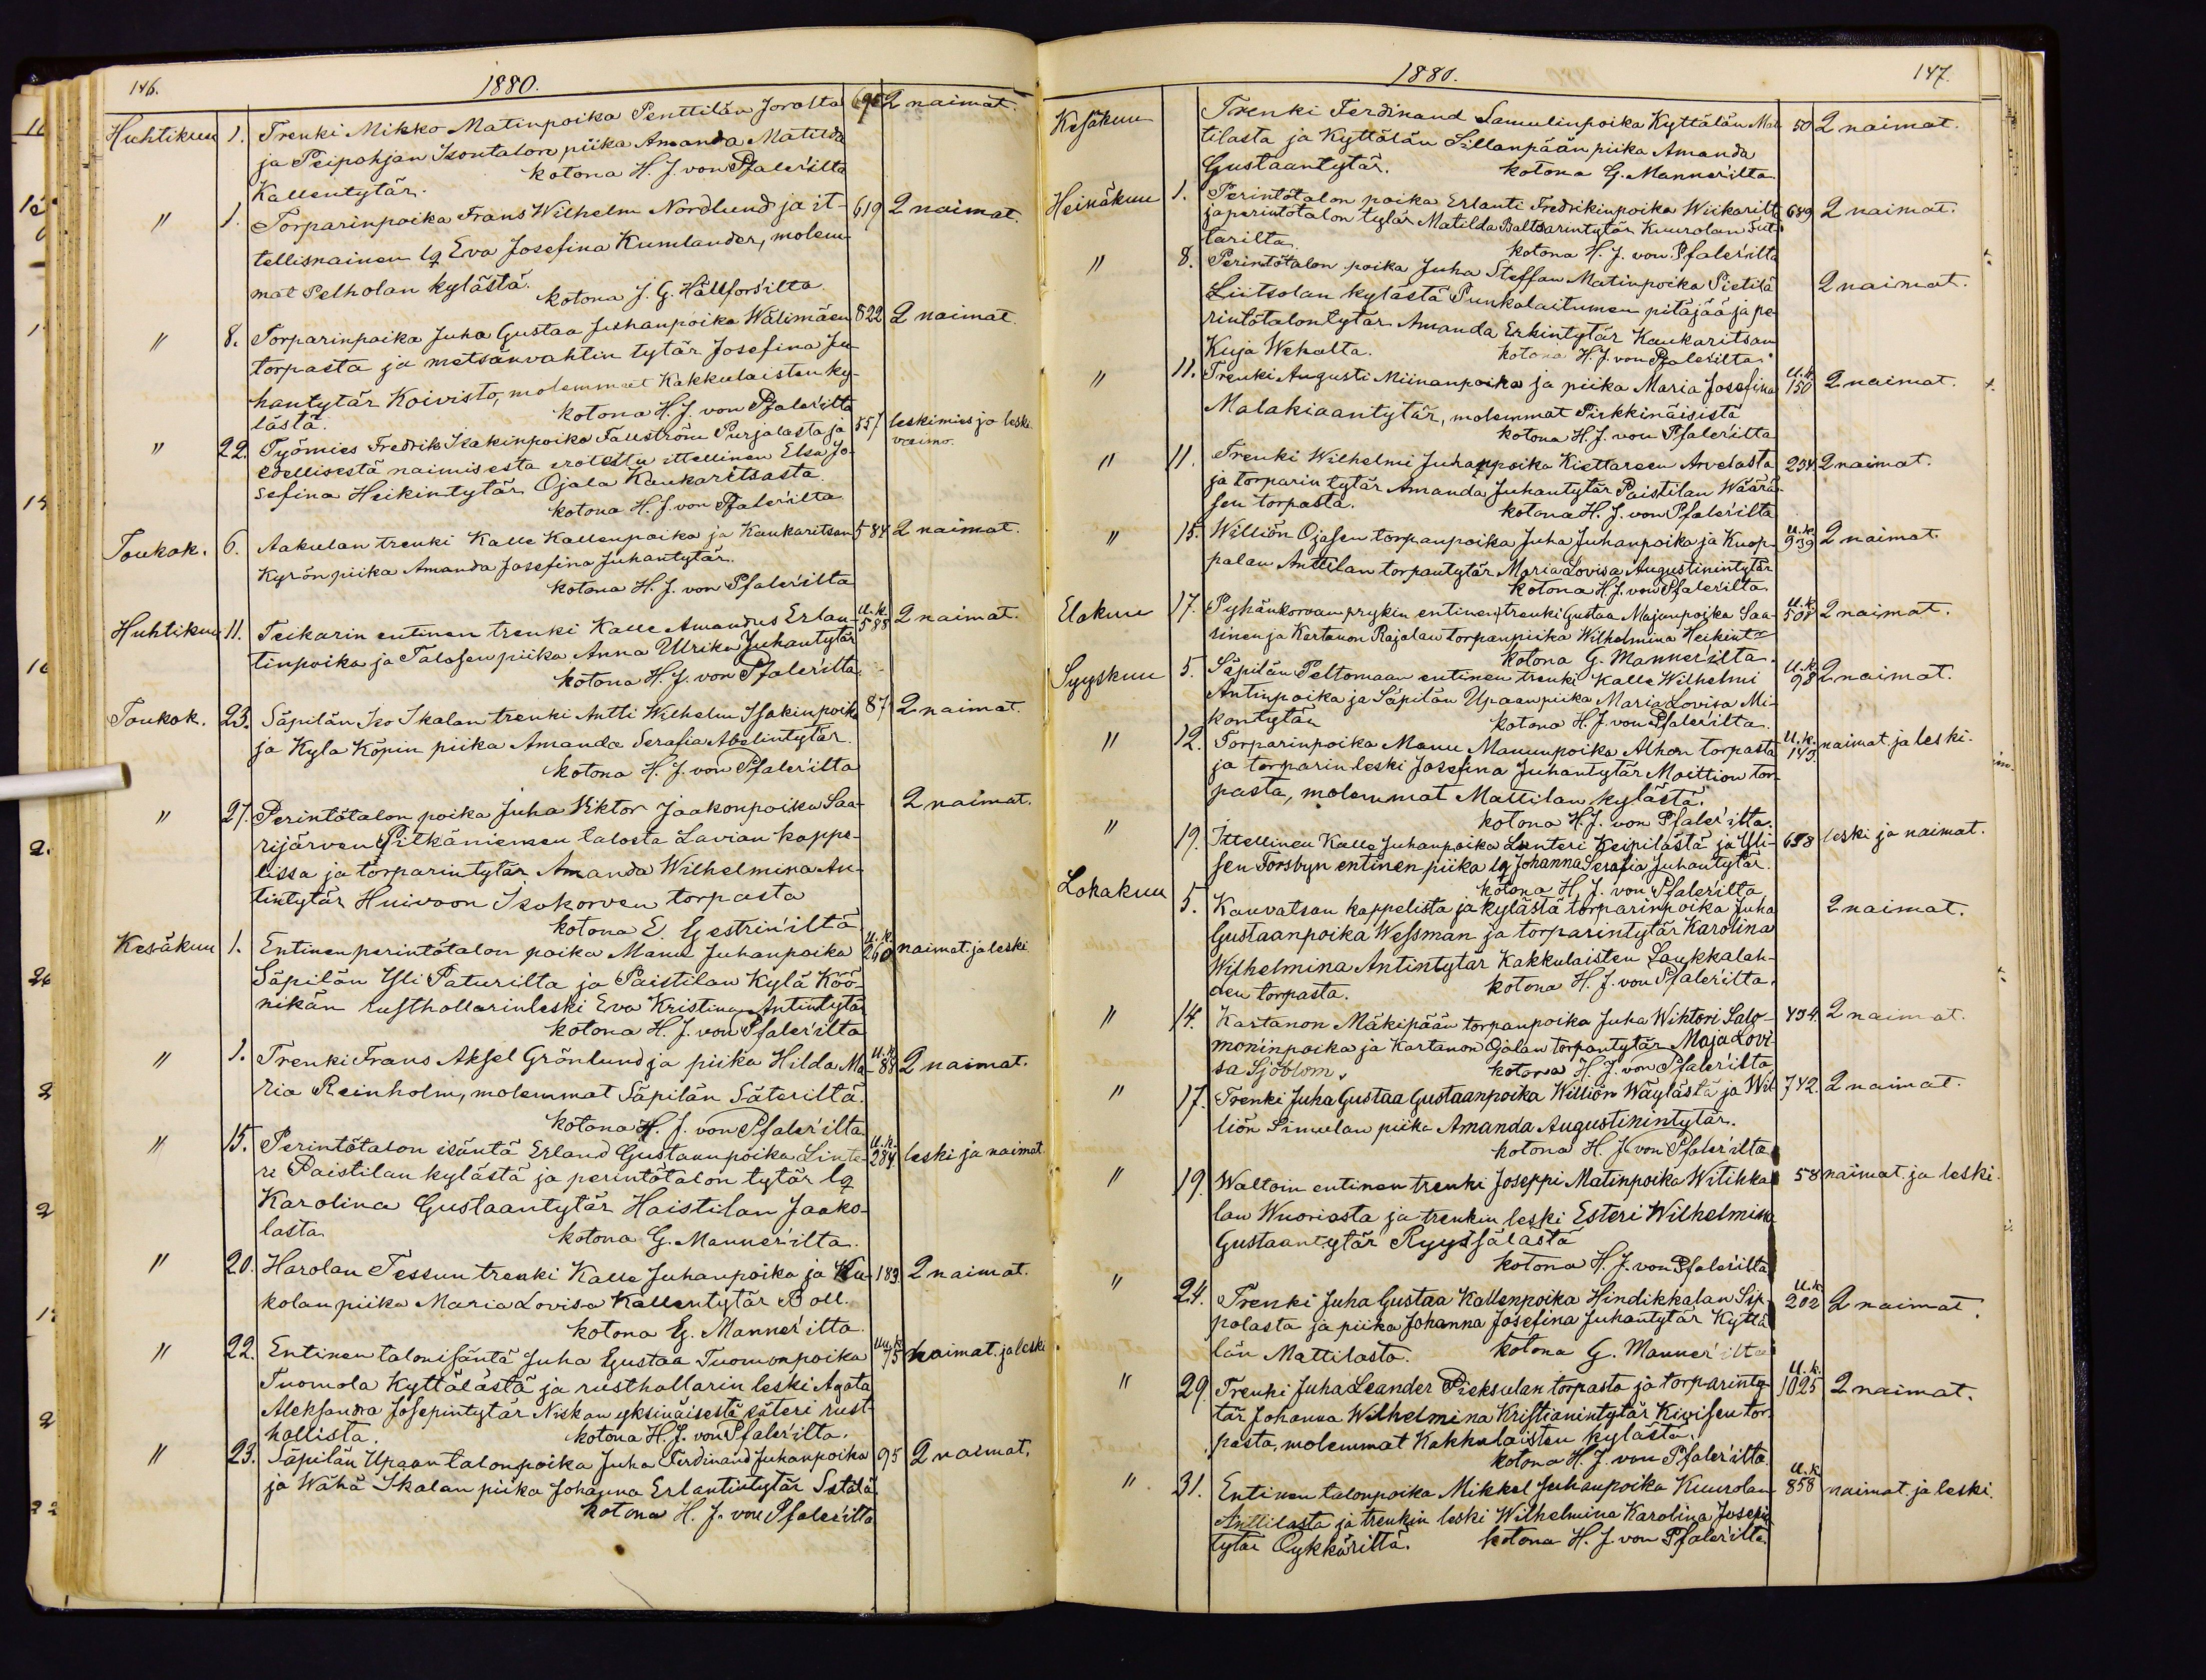 146.
1880.
Huhtikuu 1. Trenki Mikko Matinpoika Penttilän Joralta 695 2 naimat.
ja Peipohjan Isontalon piika Amanda Matilda
Kallentytär. kotona H. J. von Pfaler'ilta
" 1. Torparinpoika Frans Wilhelm Nordlund ja it- 619 2 naimat.
tellisnainen lq Eva Josefina Kumlander, molem-
mat Pelholan kylästä.
kotona J. G. Hällfors'ilta
" 8. Torparinpoika Juha Gustaa Juhanpoika Wälimäen 822 2 naimat.
torpasta ja metsänvahtin tytär Josefina Ju-
hantytär Koivisto, molemmat Kakkulaisten ky-
lästä. kotona H. J. von Pfaler'ilta
" 22. Työmies Fredrik Isakinpoika Fallström Purjalasta ja 557 leskimies ja leski
edellisestä naimisesta erotettu ittellinen Elsa Jo- vaimo.
sefina Heikintytär Ojala Kaukaritsasta.
kotona H. J. von Pfaler'ilta
Toukok. 6. Aakulan trenki Kalle Kallenpoika ja Kaukaritsan 584 2 naimat.
Kyrön piika Amanda Josefina Juhantytär.
kotona H. J. von Pfaler'ilta
Huhtikuu 11. Teikarin entinen trenki Kalle Amandus Erlan- U.k. 588 2 naimat.
tinpoika ja Talosen piika Anna Ulrika Juhantytär
kotona H. J. von Pfaler'ilta.
Toukok. 23. Säpilän Iso Ikalan trenki Antti Wilhelm Isakinpoika 87 2 naimat.
ja Kylä Köpin piika Amanda Serafia Abelintytär.
kotona H. J. von Pfaler'ilta
" 27. Perintötalon poika Juha Viktor Jaakonpoika Saa- 2 naimat.
rijärven Pitkäniemen talosta Lavian kappe-
lissa ja torparintytär Amanda Wilhelmina An-
tintytär Huivoon Isokorven torpasta
kotona E. Gestrin'iltä
Kesäkuu 1. Entinen perintötalon poika Manu Juhanpoika U.k. 260 naimat. ja leski
Säpilän Yli Paturilta ja Paistilan Kylä Köö-
nikän rusthollarinleski Eva Kristina Antintytär
kotona H. J. von Pfaler'ilta
" 1. Trenki Frans Aksel Grönlund ja piika Hilda Ma- U.k. 88 2 naimat.
ria Reinholm, molemmat Säpilän Säteriltä.
kotona H. J. von Pfaler'ilta.
" 15. Perintötalon isäntä Erland Gustaanpoika Linte- U.k. 284. leski ja naimat.
ri Paistilan kylästä ja perintötalon tytär lq
Karolina Gustaantytär Haistilan Jaako-
lasta kotona G. Manner'ilta.
" 20. Harolan Tessun trenki Kalle Juhanpoika ja Ku- 189. 2 naimat.
kolan piika Maria Lovisa Kallentytär Boll.
kotona G. Manner'ilta.
" 22. Entinen talonisäntä Juha Gustaa Tuomonpoika Uu.k. 75 naimat. ja leski
Tuomola Kyttälästä ja rusthollarin leski Agata
Aleksandra Josepintytär Niskan yksinäisestä säteri rust-
hollista. kotona H. J. von Pfaler'ilta.
" 23. Säpilän Upaan talonpoika Juha Ferdinand Juhanpoika 95 2 naimat.
ja Wähä Ikalan piika Johanna Erlantintytär Satala
kotona H. J. von Pfaler'ilta
1880.
147.
Kesäkuu Trenki Ferdinand Samulinpoika Kyttälän Mat- 50 2 naimat.
tilasta ja Kyttälän Sillanpään piika Amanda
Gustaantytär. kotona G. Manner'ilta
Heinäkuu 1. Perintötalon poika Erlanti Fredrikinpoika Wiikarilt 689 2 naimat.
ja perintötalon tytär Matilda Baltsarintytär Kuurolan Sut-
tarilta. kotona H. J. von Pfaler'ilta
" 8. Perintötalon poika Juha Steffan Matinpoika Pietilä 2 naimat.
Liitsolan kylästä Punkalaitumen pitäjää ja pe-
rintötalontytär Amanda Erkintytär Kaukaritsan
Kuja Wekalta. kotona H. J. von Pfaler'ilta
" 11. Trenki Augusti Miinanpoika ja piika Maria Josefina U.k. 150 2 naimat.
Malakiaantytär, molemmat Pirkkinäisistä
kotona H. J. von Pfaler'ilta
" 11. Trenki Wilhelmi Juhanpoika Kiettareen Arvelasta 234. 2 naimat.
ja torparin tytär Amanda Juhantytär Paistilan Wäärä-
sen torpasta. kotona H. J. von Pfaler'ilta
" 15. Williön Ojasen torpanpoika Juha Juhanpoika ja Kuop- U.k. 939 2 naimat.
palan Anttilan torpantytär Maria Lovisa Augustinintytär
kotona H. J. von Pfaler'ilta
Elokuu 17. Pyhänkorvan prykin entinen trenki Gustaa Majanpoika Saa- U.k. 508 2 naimat.
sinen ja Kartanon Rajalan torpanpiika Wilhelmina Heikint
kotona G. Manner'ilta.
Syyskuu 5. Säpilän Peltomaan entinen trenki Kalle Wilhelmi U.k. 98 2 naimat.
Antinpoika ja Säpilän Upaan piika Maria Lovisa Mi-
kontytär kotona H. J. von Pfaler'ilta.
" 12. Torparinpoika Manu Manunpoika Alhon torpasta U.k. 143. naimat. ja leski.
ja torparin leski Josefina Juhantytär Moittion tor-
pasta, molemmat Mattilan kylästä.
kotona H. J. von Pfaler'ilta.
" 19. Ittellinen Kalle Juhanpoika Lunteri Keipilästä ja Yli- 658 leski ja naimat.
sen Torsbyn entinen piika lq Johanna Serafia Juhantytär.
kotona H. J. von Pfaler'ilta
Lokakuu 5. Kauvatsan kappelista ja kylästä torparinpoika Juha 2 naimat.
Gustaanpoika Wessman ja torparintytär Karolina
Wilhelmina Antintytär Kakkulaisten Laukkalah-
den torpasta. kotona H. J. von Pfaler'ilta.
" 14. Kartanon Mäkipään torpanpoika Juha Wiktori Salo- 494. 2 naimat.
moninpoika ja Kartanon Ojalan torpantytär Maja Lovi-
sa Sjöblom. kotona H. J. von Pfaler'ilta
" 17. Trenki Juha Gustaa Gustaanpoika Williön Wäylästä ja Wil- 742. 2 naimat.
liön Simulan piika Amanda Augustinintytär.
kotona H. J. von Pfaler'ilta
" 19. Waltoin entinen trenki Joseppi Matinpoika Witikka- 58 naimat. ja leski.
lan Wuoriosta ja trenkin leski Esteri Wilhelmina
Gustaantytär Ryyssälästä
kotona H. J. von Pfaler'ilta
" 24. Trenki Juha Gustaa Kallenpoika Hindikkalan Sip- U.k. 202 2 naimat.
polasta ja piika Johanna Josefina Juhantytär Kyttä-
län Mattilasta. kotona G. Manner'ilta
" 29. Trenki Juha Leander Pieksulan torpasta ja torparinty- U.k. 1025 2 naimat.
tär Johanna Wilhelmina Kristianintytär Kivisen tor-
pasta, molemmat Kakkulaisten kylästä.
kotona H. J. von Pfaler'ilta.
" 31. Entinen talonpoika Mikkel Juhanpoika Kuurolan U.k. 858 naimat. ja leski.
Anttilasta ja trenkin leski Wilhelmina Karolina Josepin
tytär Oykkäriltä. kotona H. J. von Pfaler'ilta.